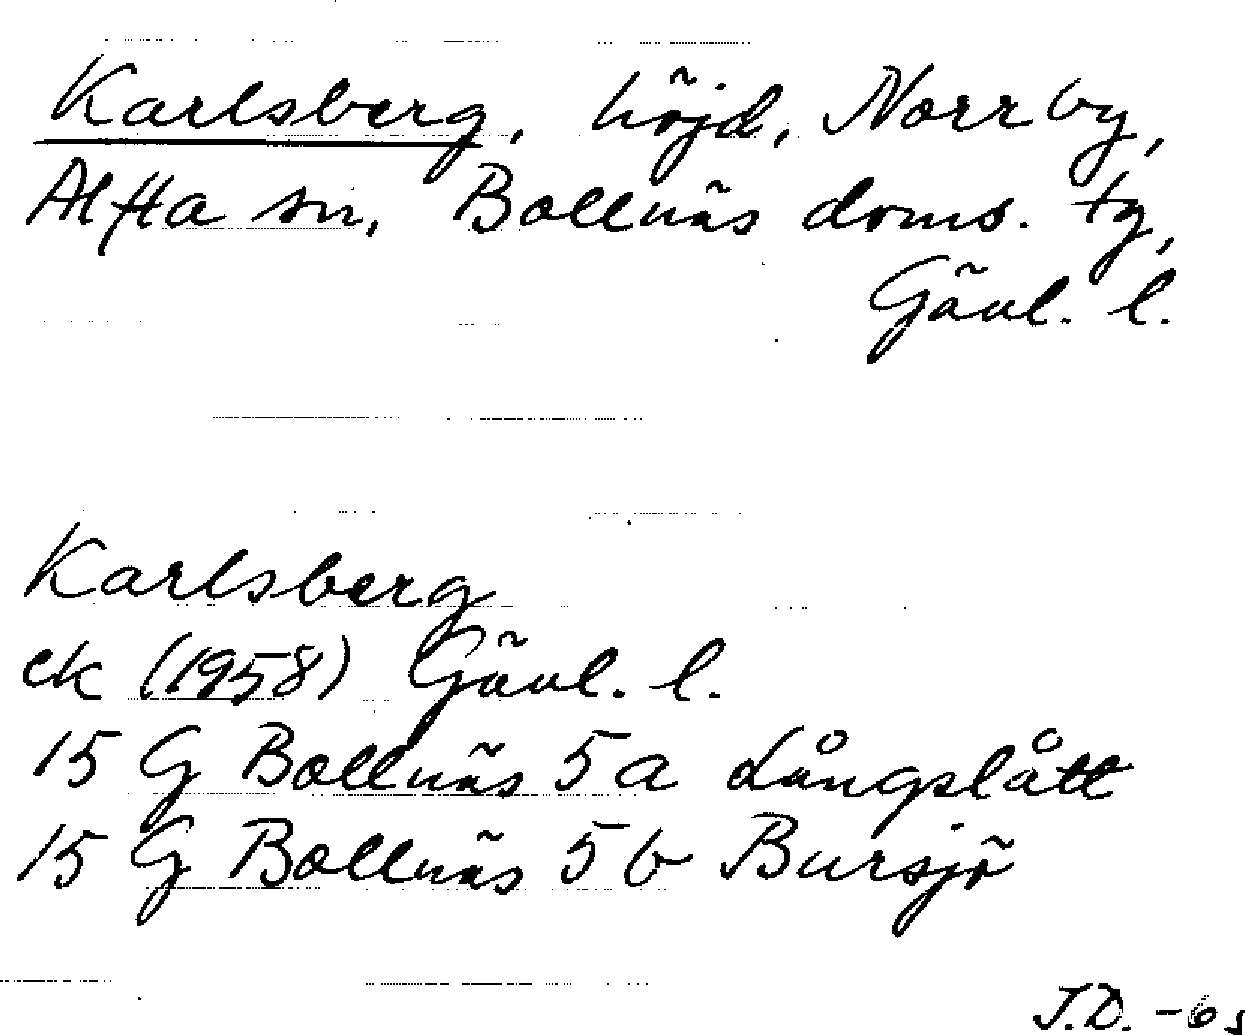 Karlsberg, höjd, Norrby,
Alfta sn, Bollnäs doms. tg,
Gävl. l.
Karlsberg
ek (1958) Gävl. l.
15 G Bollnäs 5 a Långslått
15 G Bollnäs 5 b Bursjö
J.D. -6